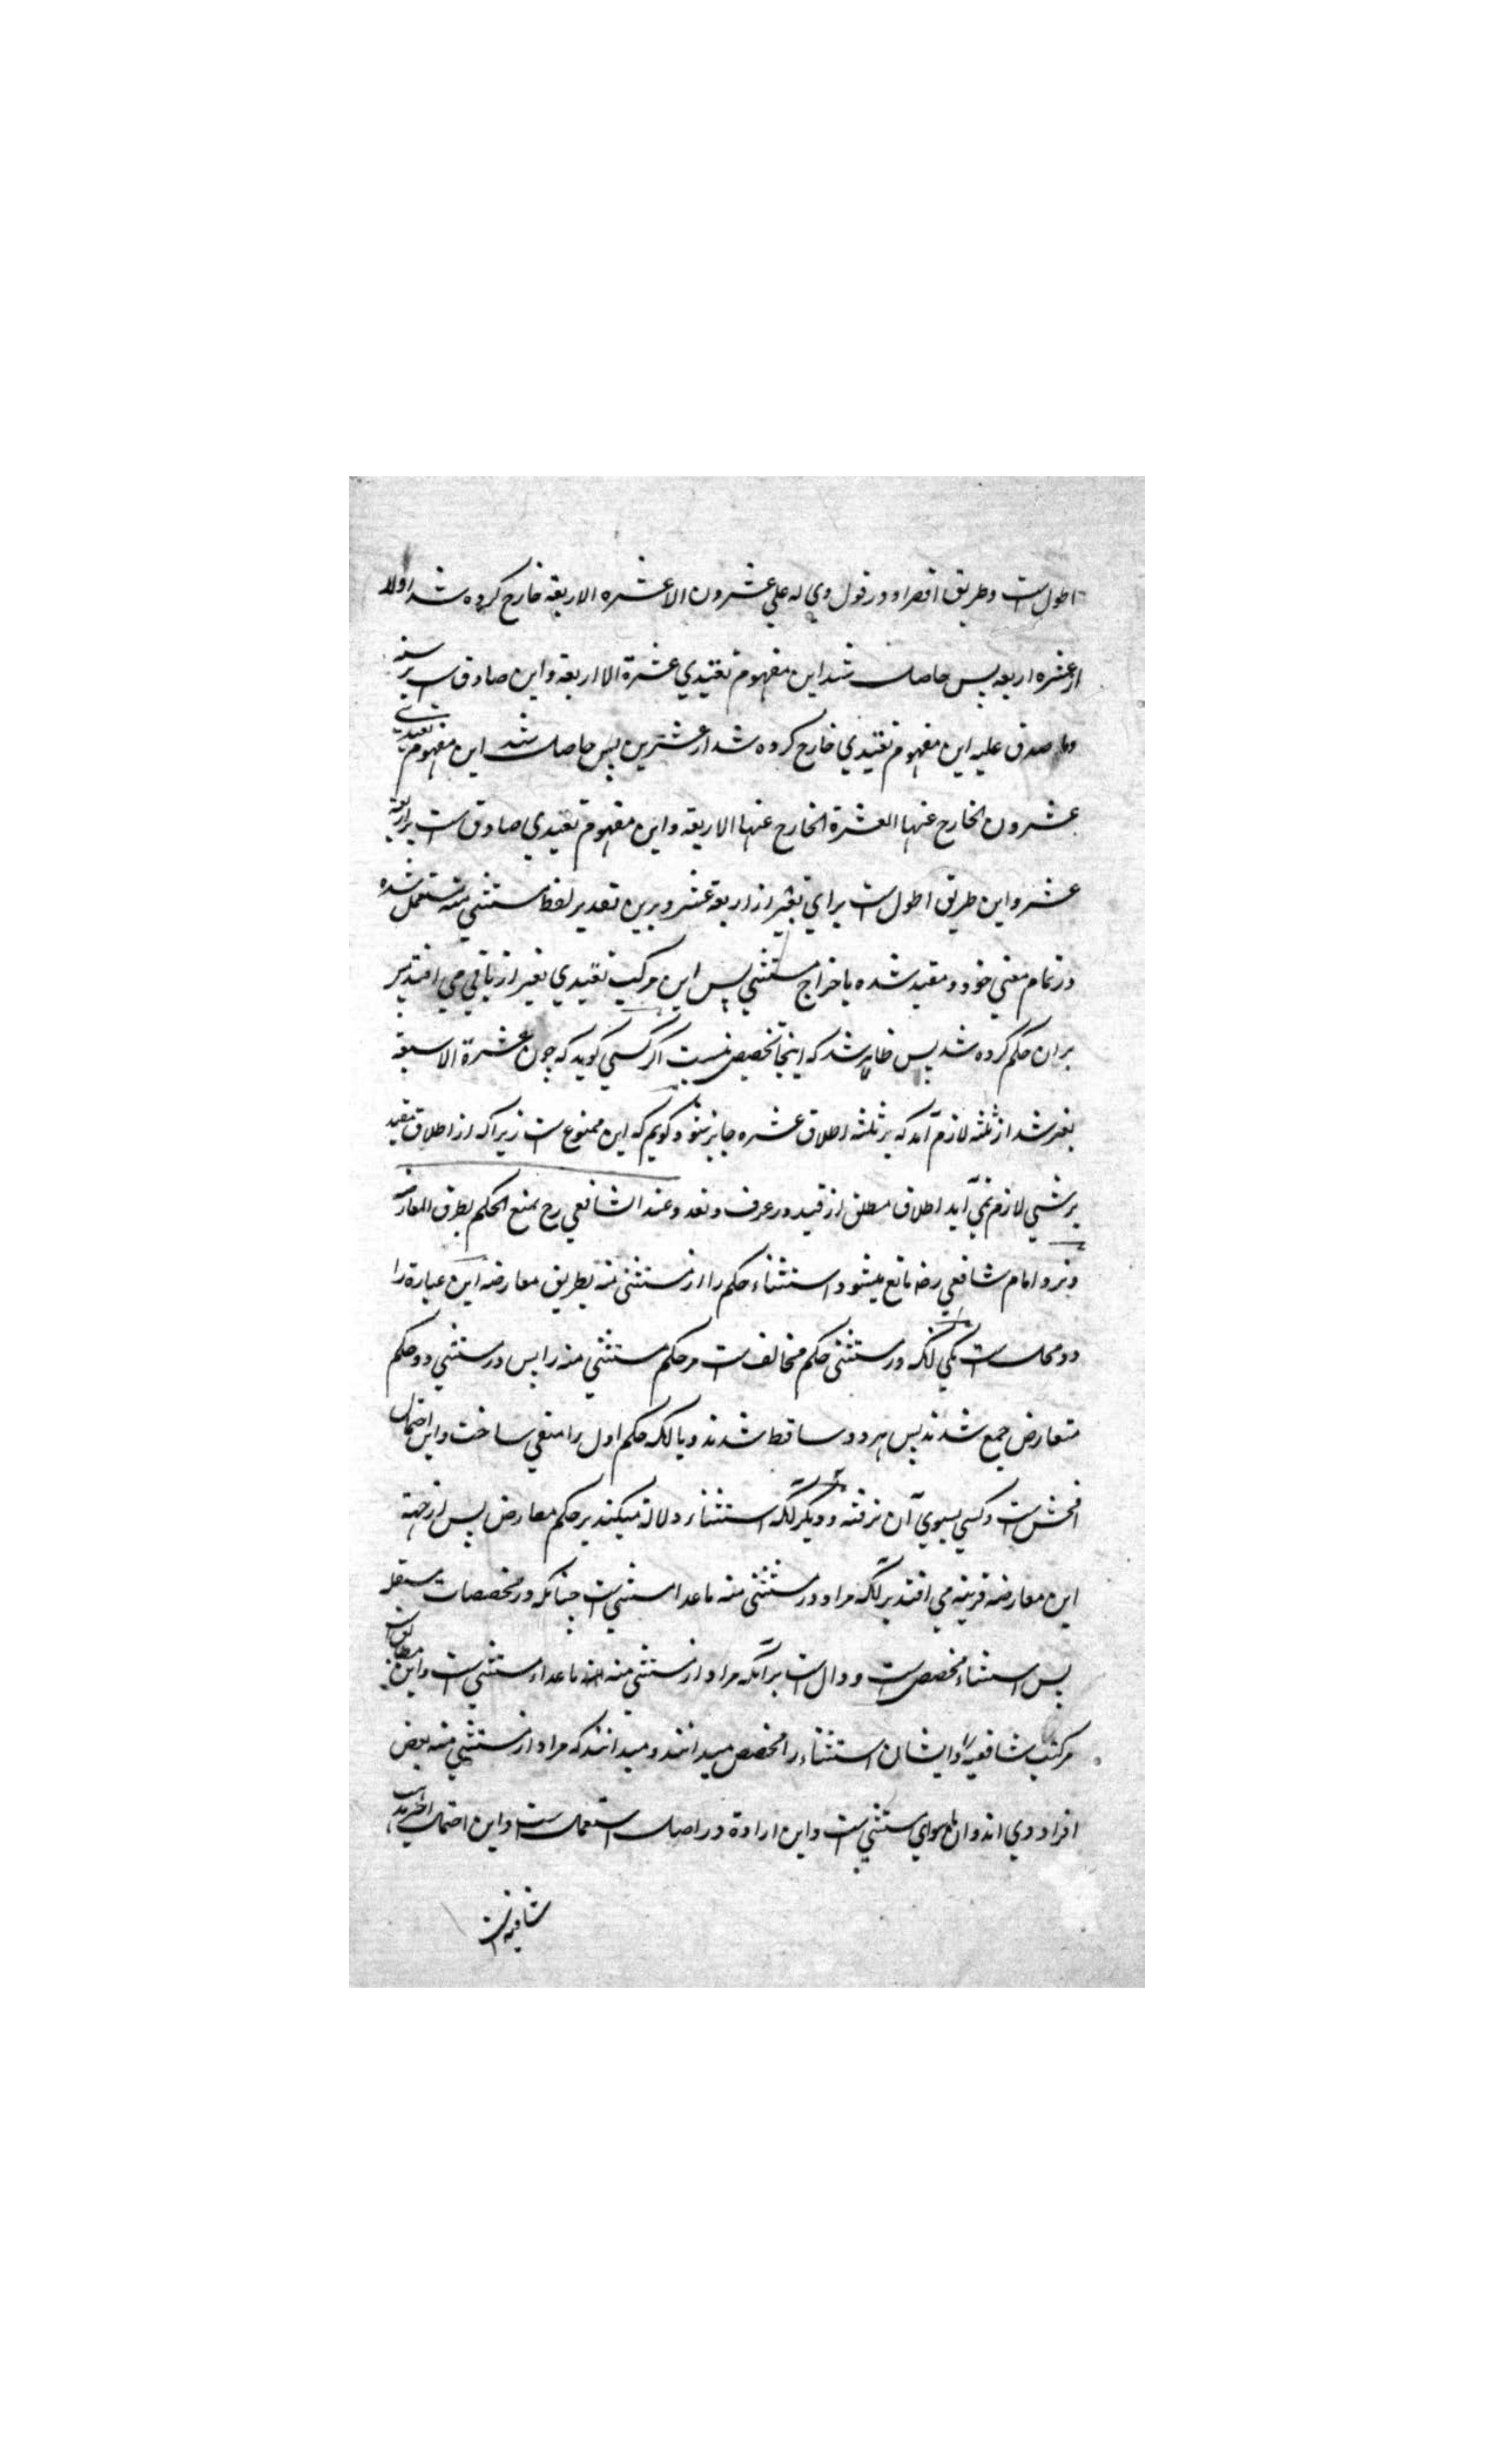 اطول است و طریق اقصر او در قول وي له علي عشرون الا عشره الا اربعه خارج کرده شد اولا
از عشره اربعه پس حاصل شد این مفهوم تقییدي عشرة الا اربعة و این صادق است بر سته
وما صدق علیه این مفهوم تقییدي خارج کرده شد از عشرین پس حاصل شد این مفهوم تقییدي
عشرون الخارج عنها العشرة الخارج عنها الاربعة و این مفهوم تقییدي صادق است بر اربعة
عشر و این طریق اطول است براي تعبیر از اربعة عشر و برین تقدیر لفظ مستثني منه مستعمل شده
در تمام معني خود و مقید شده باخراج مستثني پس این مرکب تقییدي تعبیر از باقي مي افتد پس
بران حکم کرده شد پس ظاهر شد که اینجا تخصیص نیست اگر کسي گوید که چون عشرة الا سبعة
تعبیر شد از ثلثه لازم آمد که بر ثلثه اطلاق عشره جایز شود گویم که این ممنوع است زیرا که از اطلاق مقید
بر شي لازم نمي آید اطلاق مطلق از قید در عرف و لغة و عند الشافعي رح یمنع الحکم بطرق المعارضة
و نزد امام شافعي رض مانع میشود استثناء حکم را از مستثنی منه بطریق معارضه این عبارة را
دو محمل است یکي آنکه در مستثنی حکم مخالف است مر حکم مستثني منه را پس در مستثني دو حکم
متعارض جمع شدند پس هر دو ساقط شدند و یا آنکه حکم اول را منفي ساخت و این احتمال
افحش است و کسي بسوي آن نرفته و دیگر آنکه استثناء دلالة میکند بر حکم معارض پس از جهة
این معارضه قرینه مي افتد بر آنکه مراد در مستثنی منه ما عدا مستثني است چنانکه در مخصصات مستقله
پس استثناء مخصص است و دال است بر آنکه مراد از مستثني منه ما عداء مستثني است و این مطابق است
مر کتب شافعیه را و ایشان استثناء را مخصص میدانند و میدانند که مراد از مستثني منه بعض
افراد وي اند و ان ما سواي مستثني است و این ارادة در اصل استعمال است و این احتمال اخیر مذهب
شافعیه است